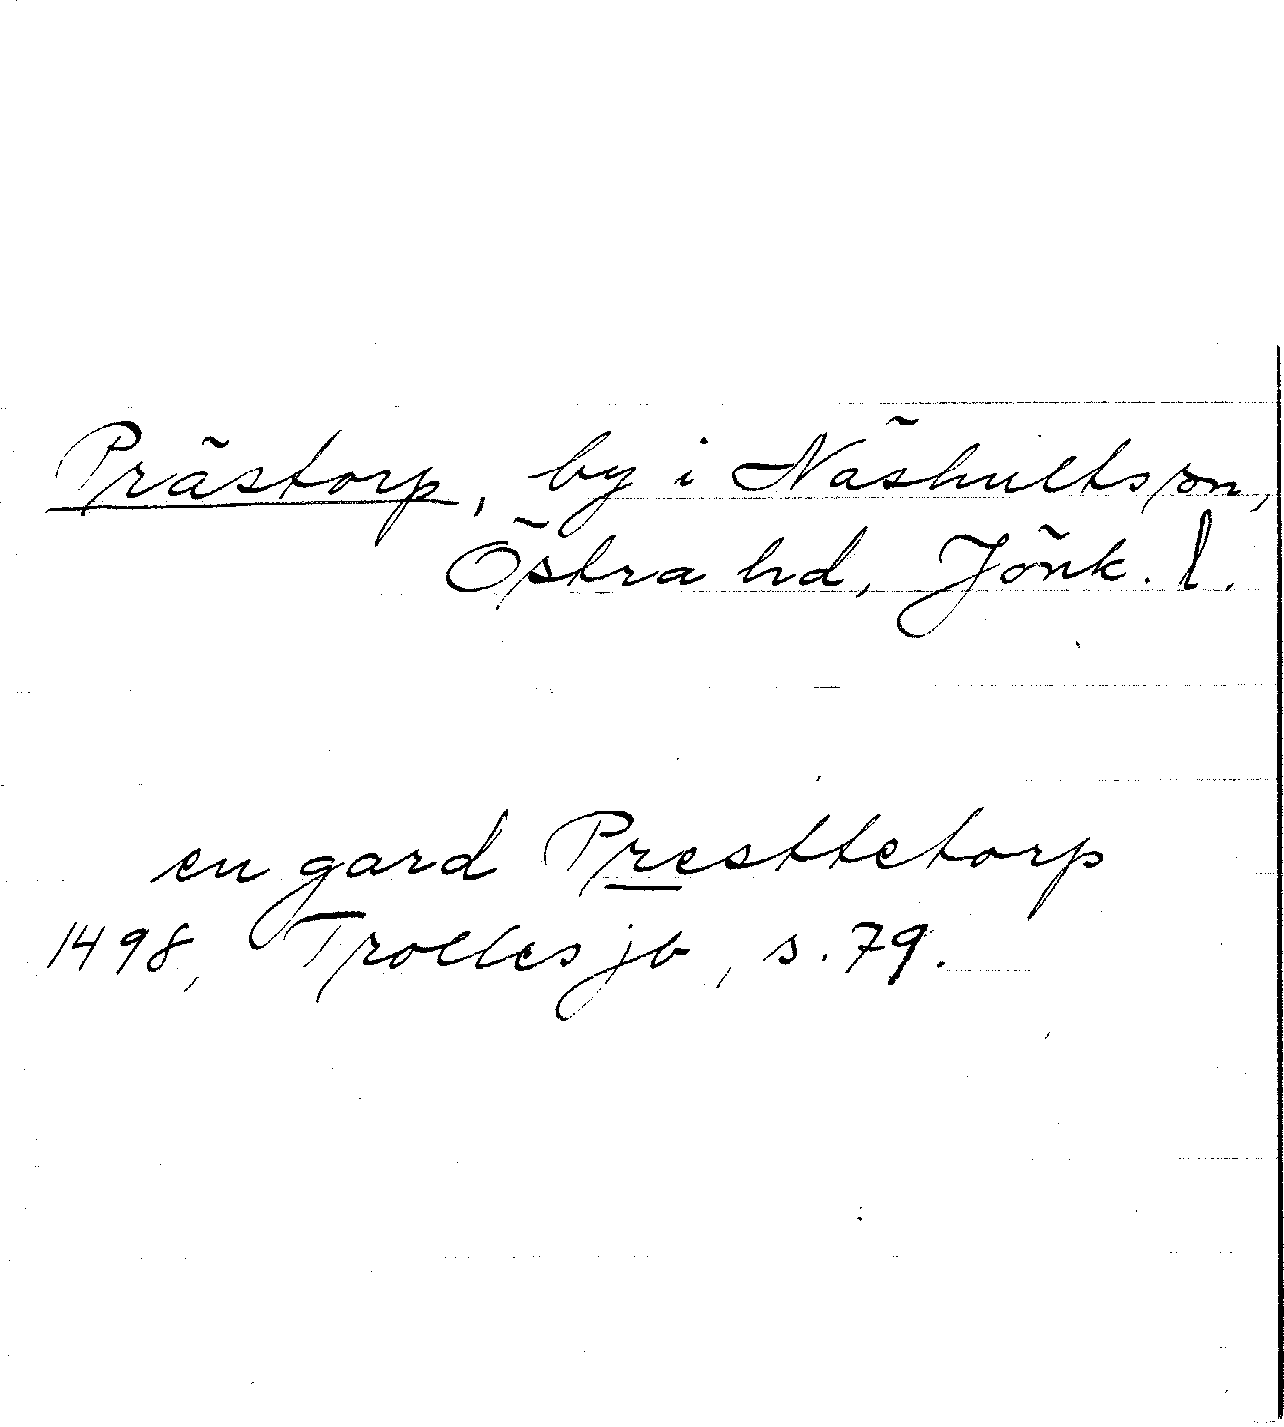 Prästorp, by i Näshults sn,
Östra hd, Jönk. l.
en gard Presttetorp
1498, Trolles jb, s. 79.